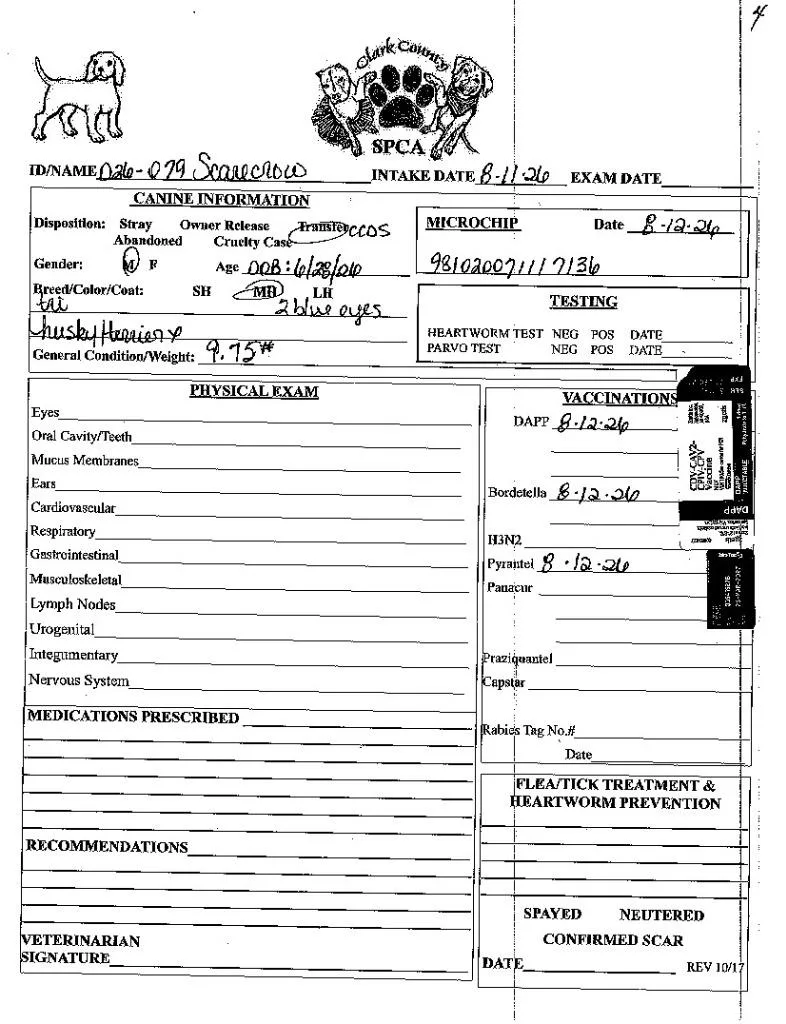 4
Clark County
SPCA
ID/NAME D26-079 Scarecrow INTAKE DATE 8-11-26 EXAM DATE
CANINE INFORMATION
Disposition: Stray Owner Release Transfer CCDS
Abandoned Cruelty Case
Gender: M F Age DOB: 6/28/26
Breed/Color/Coat: SH MH LH
tri 2 blue eyes
husky/terrier x
General Condition/Weight: 9.75#
MICROCHIP Date 8-12-26
981020071117136
TESTING
HEARTWORM TEST NEG POS DATE
PARVO TEST NEG POS DATE
PHYSICAL EXAM
Eyes
Oral Cavity/Teeth
Mucus Membranes
Ears
Cardiovascular
Respiratory
Gastrointestinal
Musculoskeletal
Lymph Nodes
Urogenital
Integumentary
Nervous System
MEDICATIONS PRESCRIBED
RECOMMENDATIONS
VETERINARIAN
SIGNATURE
VACCINATIONS
DAPP 8-12-26
Bordetella 8-12-26
H3N2
Pyrantel 8-12-26
Panacur
Praziquantel
Capstar
Rabies Tag No.#
Date
CDV-CAV2-
CPIV-CPV
Vaccine
DAPP
FLEA/TICK TREATMENT &
HEARTWORM PREVENTION
SPAYED NEUTERED
CONFIRMED SCAR
DATE REV 10/17